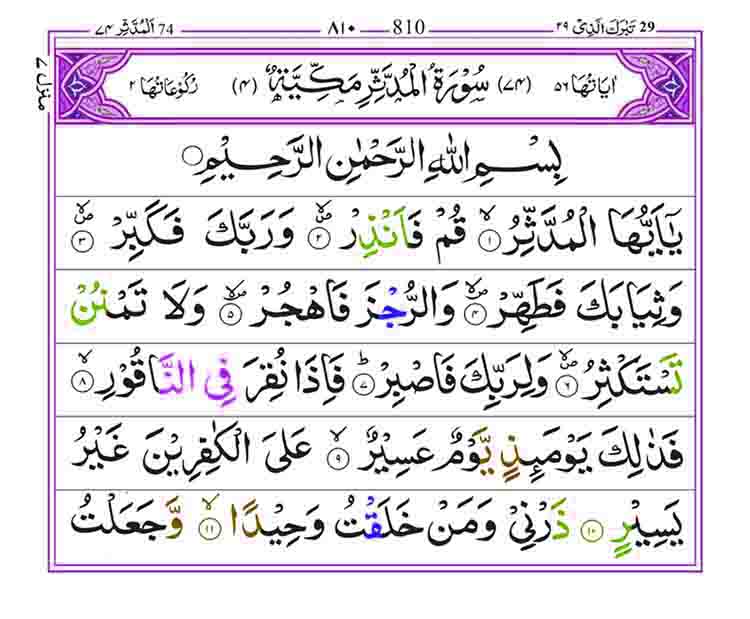 29 تَبٰرَكَ الَّذِیْ ٢٩ 810 ٨١٠ 74 اَلْمُدَّثِّرِ ٧٤
منزل ٧
اٰيَاتُهَا ٥٦ (٧٤) سُوْرَةُ الْمُدَّثِّرِ مَكِّيَّةٌ (٤) رُكُوْعَاتُهَا ٢
بِسْمِ اللّٰهِ الرَّحْمٰنِ الرَّحِيْمِ
يٰۤاَيُّهَا الْمُدَّثِّرُ ۙ ١ قُمْ فَاَنْذِرْ ۪ۙ ٢ وَرَبَّكَ فَكَبِّرْ ۪ۙ ٣
وَثِيَابَكَ فَطَهِّرْ ۪ۙ ٤ وَالرُّجْزَ فَاهْجُرْ ۪ۙ ٥ وَلَا تَمْنُنْ
تَسْتَكْثِرُ ۪ۙ ٦ وَلِرَبِّكَ فَاصْبِرْ ؕ ٧ فَاِذَا نُقِرَ فِى النَّاقُوْرِ ۙ ٨
فَذٰلِكَ يَوْمَئِذٍ يَّوْمٌ عَسِيْرٌ ۙ ٩ عَلَى الْكٰفِرِيْنَ غَيْرُ
يَسِيْرٍ ١٠ ذَرْنِىْ وَمَنْ خَلَقْتُ وَحِيْدًا ۙ ١١ وَّجَعَلْتُ